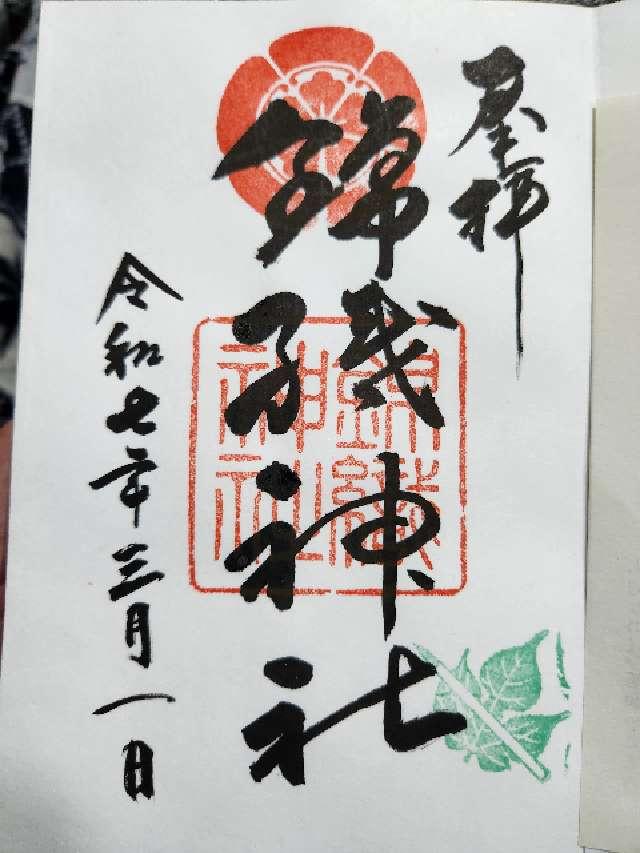 奉拝
錦織神社
錦織神社
令和七年三月一日